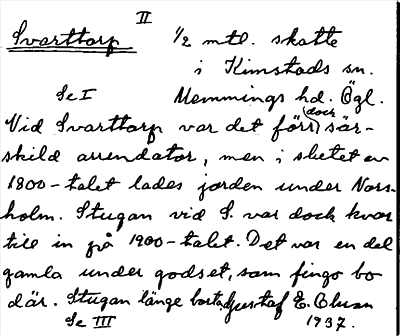 II
Svarttorp 1/2 mtl. skatte
i Kimstads sn.
Se I Memmings hd. Ögl.
Vid Svarttorp var det förr (dock) sär-
skild arrendator, men i slutet av
1800-talet lades jorden under Nors-
holm. Stugan vid S. var dock kvar
till in på 1900-talet. Det var en del
gamla under godset, som fingo bo
där. Stugan länge borta. Gustaf E. Olsson
Se III 1937.